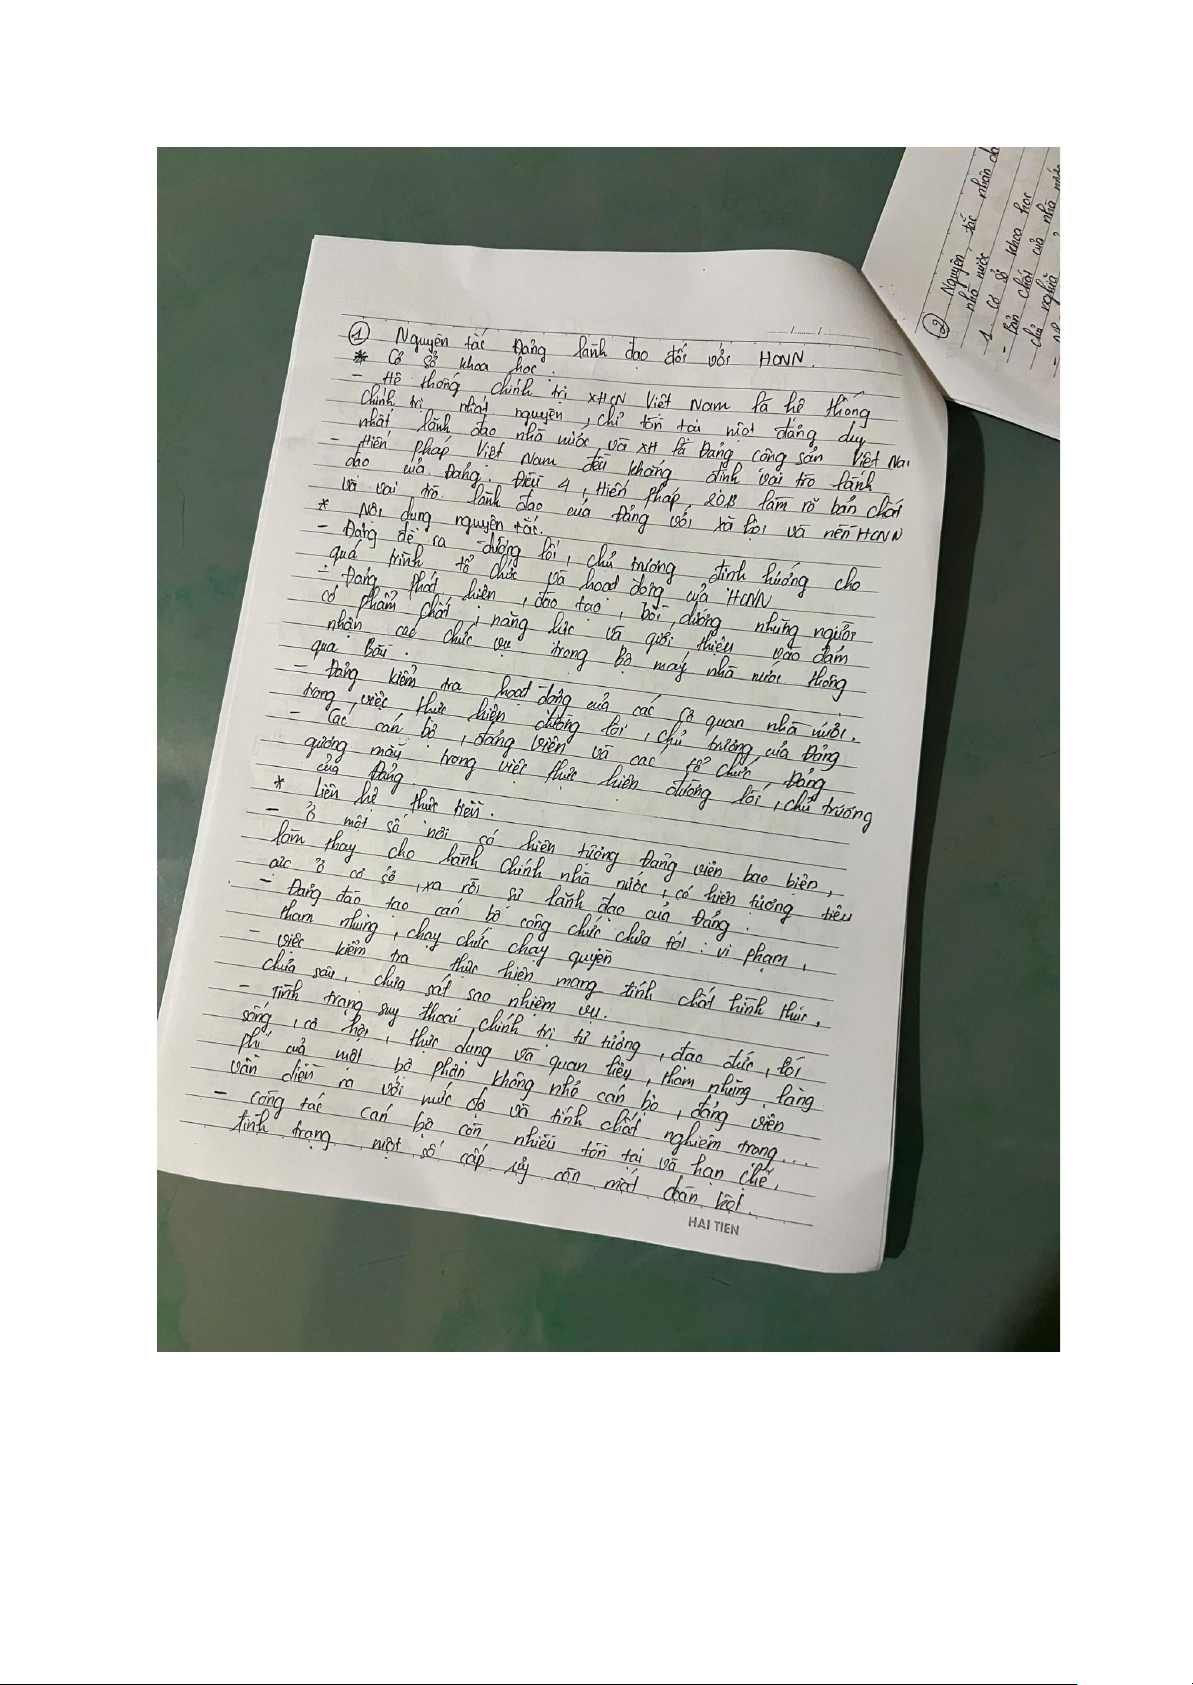 ① Nguyên tắc Đảng lãnh đạo đối với HCNN.
* Cơ sở khoa học.
- Hệ thống chính trị XHCN Việt Nam là hệ thống
chính trị nhất nguyên, chỉ tồn tại một đảng duy
nhất lãnh đạo nhà nước và XH là Đảng cộng sản Việt Na
- Hiến pháp Việt Nam đều khẳng định vai trò lãnh
đạo của Đảng. Điều 4, Hiến pháp 2013 làm rõ bản chất
và vai trò lãnh đạo của Đảng với xã hội và nền HCNN
* Nội dung nguyên tắc.
- Đảng đề ra đường lối, chủ trương định hướng cho
quá trình tổ chức và hoạt động của HCNN
- Đảng phát hiện, đào tạo, bồi dưỡng những người
có phẩm chất, năng lực và giới thiệu vào đảm
nhận các chức vụ trong bộ máy nhà nước thông
qua Bầu.
- Đảng kiểm tra hoạt động của các cơ quan nhà nước,
trong việc thực hiện đường lối, chủ trương của Đảng
- Các cán bộ, đảng viên và các tổ chức Đảng
gương mẫu trong việc thực hiện đường lối, chủ trương
của Đảng
* Liên hệ thực tiễn.
- Ở một số nơi có hiện tượng Đảng viên bao biện,
làm thay cho hành chính nhà nước, có hiện tượng tiêu
cực ở cơ sở, xa rời sự lãnh đạo của Đảng.
- Đảng đào tạo cán bộ công chức chưa tốt: vi phạm,
tham nhũng, chạy chức chạy quyền
- việc kiểm tra thực hiện mang tính chất hình thức,
chưa sâu, chưa sát sao nhiệm vụ.
- Tình trạng suy thoái chính trị tư tưởng, đạo đức, lối
sống, cơ hội, thực dụng và quan liêu, tham nhũng lãng
phí của một bộ phận không nhỏ cán bộ, đảng viên
vẫn diễn ra với mức độ và tính chất nghiêm trọng...
- công tác cán bộ còn nhiều tồn tại và hạn chế,
tình trạng một số cấp ủy còn mất đoàn kết.
HAI TIEN
② Nguyên tắc nhân dâ
nhà nước
1 Cơ sở khoa học
- Bản chất của nhà nước
chủ nghĩa